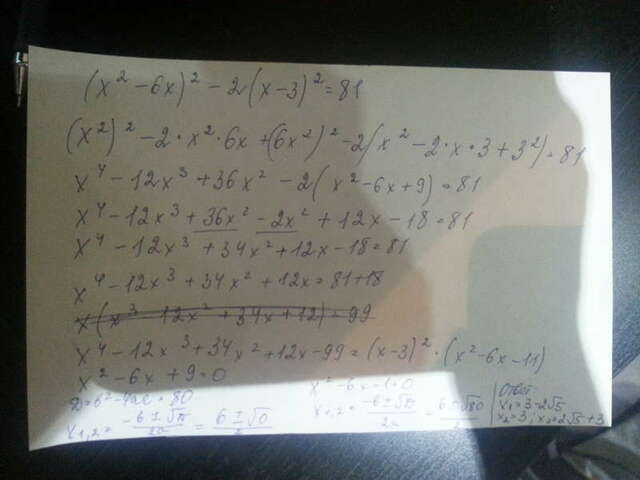 (x² - 6x)² - 2(x-3)² = 81
(x²)² - 2·x²·6x + (6x²)² - 2(x² - 2·x·3 + 3²) = 81
x⁴ - 12x³ + 36x² - 2(x² - 6x + 9) = 81
x⁴ - 12x³ + 36x² - 2x² + 12x - 18 = 81
x⁴ - 12x³ + 34x² + 12x - 18 = 81
x⁴ - 12x³ + 34x² + 12x = 81 + 18
x(x³ - 12x² + 34x + 12) = 99
x⁴ - 12x³ + 34x² + 12x - 99 = (x-3)²·(x² - 6x - 11)
x² - 6x + 9 = 0
D = b² - 4ac = 80
x₁,₂ = = 6 ± √0
x₁,₂ = = 6 ± √80
Ответ
x₁ = 3 - 2√5
x₂ = 3; x₃ = 2√5 + 3